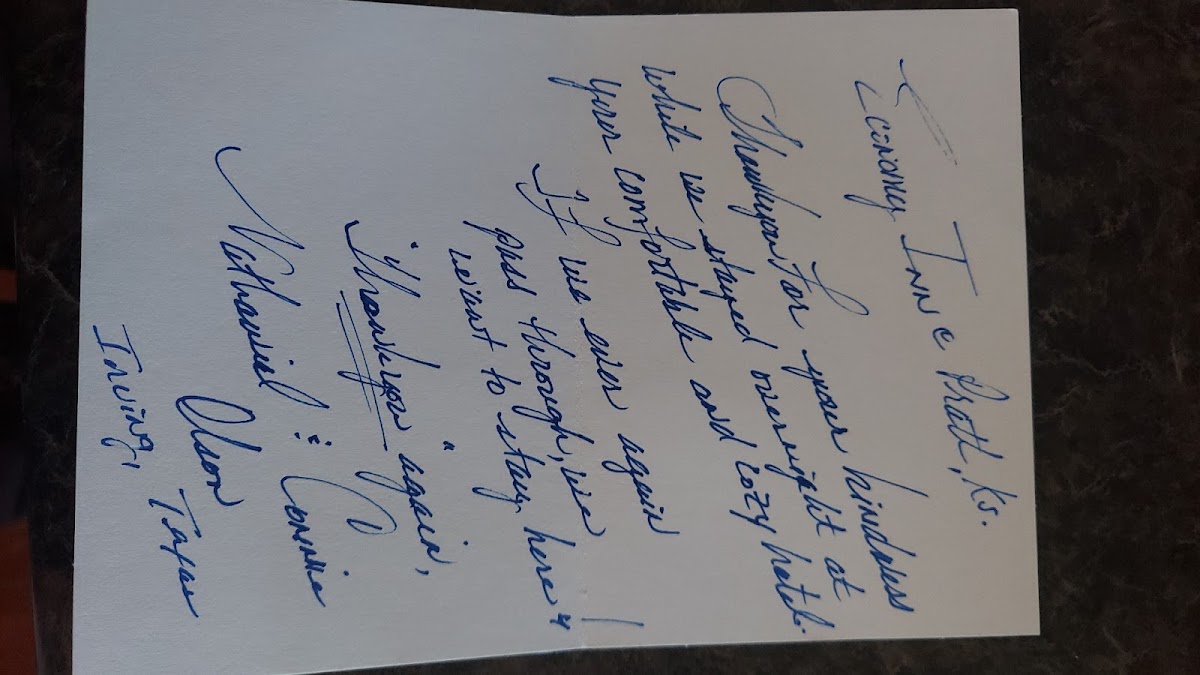 Economy Inn @ Pratt, Ks.
Thank you for your kindness
while we stayed overnight at
your comfortable and cozy hotel.
If we ever again
pass through, we
want to stay here!
"Thank you" again,
Nathaniel & Connie
Olson
Irving, Texas